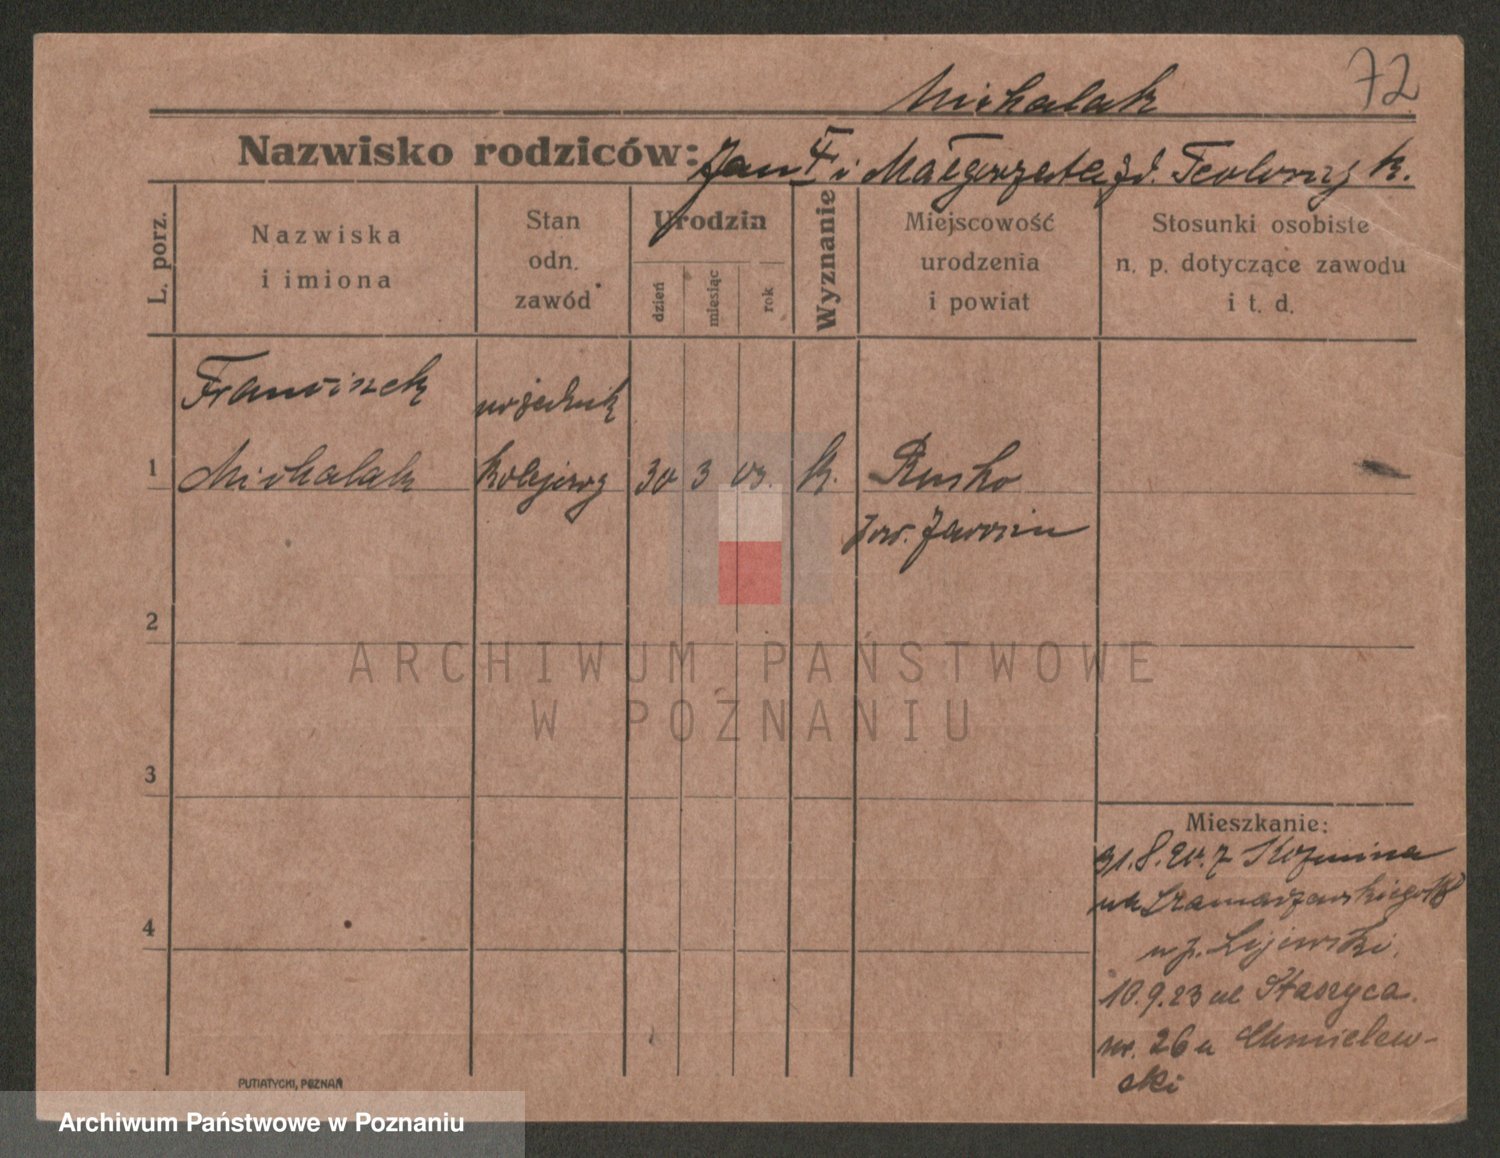 72
Michalak
Nazwisko rodziców: Jan † i Małgorzata zd. k.
L. porz.
Nazwiska
i imiona
Stan
odn.
zawód
Urodzin
dzień
miesiąc
rok
Wyznanie
Miejscowość
urodzenia
i powiat
Stosunki osobiste
n. p. dotyczące zawodu
i t. d.
Franciszek
1 Michalak kolejowy 30 3 03. k. Rusko
pow. Jarocin
2
3
4
Mieszkanie:
31.8.20. z Koźmina
18
u p. Lijewski.
10.9.23 ul Staszyca
nr. 26 u Chmielew-
ski
PUTIATYCKI, POZNAŃ
ARCHIWUM PAŃSTWOWE
W POZNANIU
Archiwum Państwowe w Poznaniu